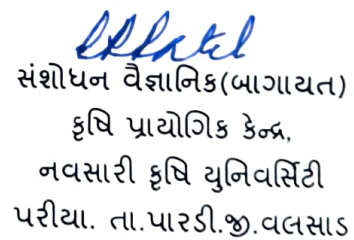 સંશોધન વૈજ્ઞાનિક(બાગાયત)
કૃષિ પ્રાયોગિક કેન્દ્ર,
નવસારી કૃષિ યુનિવર્સિટી
પરીયા. તા.પારડી.જી.વલસાડ